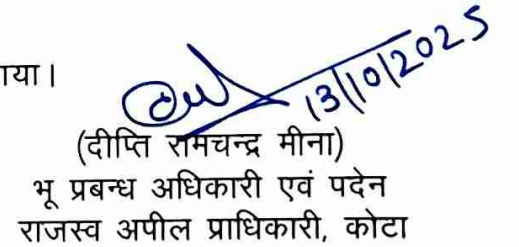 गया।
13/10/2025
(दीप्ति रामचन्द्र मीना)
भू प्रबन्ध अधिकारी एवं पदेन
राजस्व अपील प्राधिकारी, कोटा